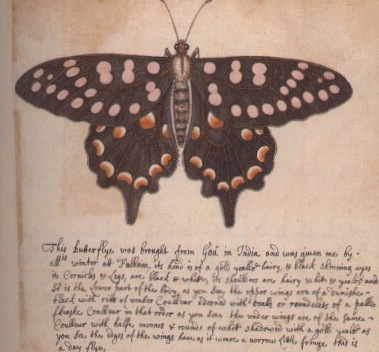 This butterflye was brought from Goa in India and was giuen me by
Mris winter att Fulham, its head is of a gold yeallo hairy, & black shining eyes
its Cornicles & Legs, are black & white, its shoulders are hairy white &
is the lower part of the body, as you see the upper wings are of a
black with of umber Coulleur adorned with or of a pallid
Coulleur in that order as you see the under wings are of the same
Coulleur with halfe moones & rounds of whit shadowed with a gold yeallo as
you see the edges of the wings haue, as it weare a norrow little fringe this is
a day flye,